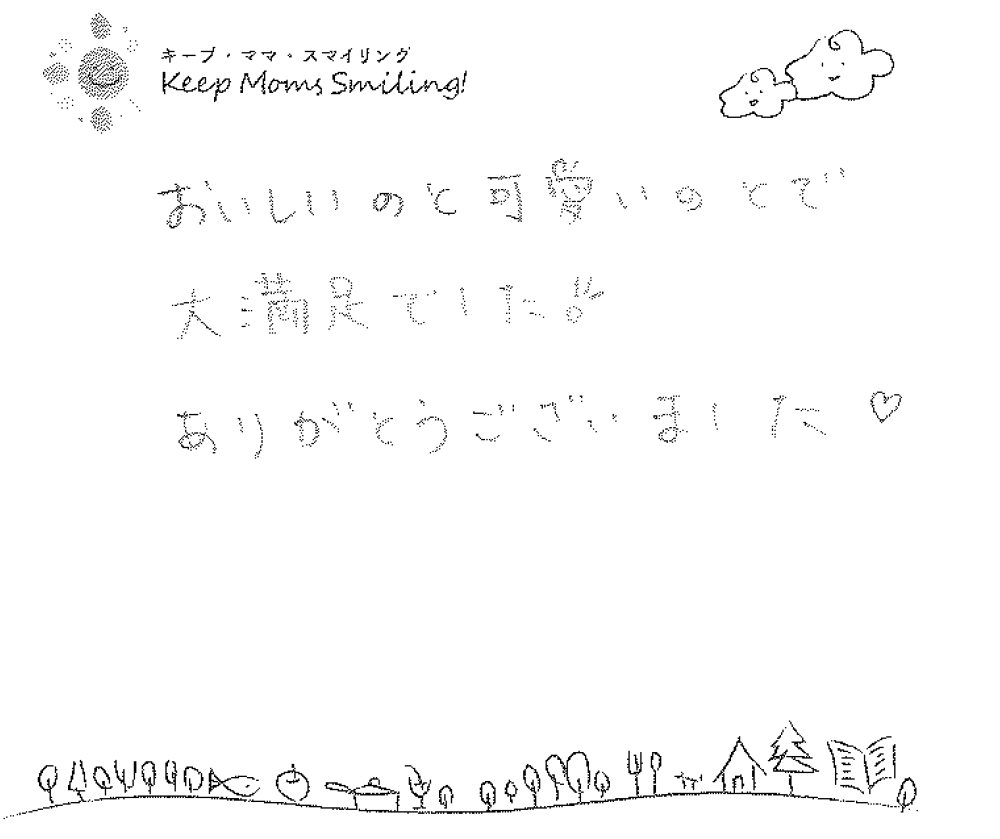 キープ・ママ・スマイリング
Keep Moms Smiling!
おいしいのと可愛いのとで
大満足でした!!
ありがとうございました♡